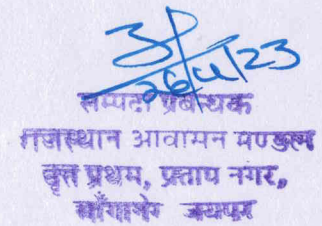 26/4/23
सम्पदा प्रबन्धक
राजस्थान आवासन मण्डल
वृत्त प्रथम, प्रताप नगर,
सांगानेर जयपुर